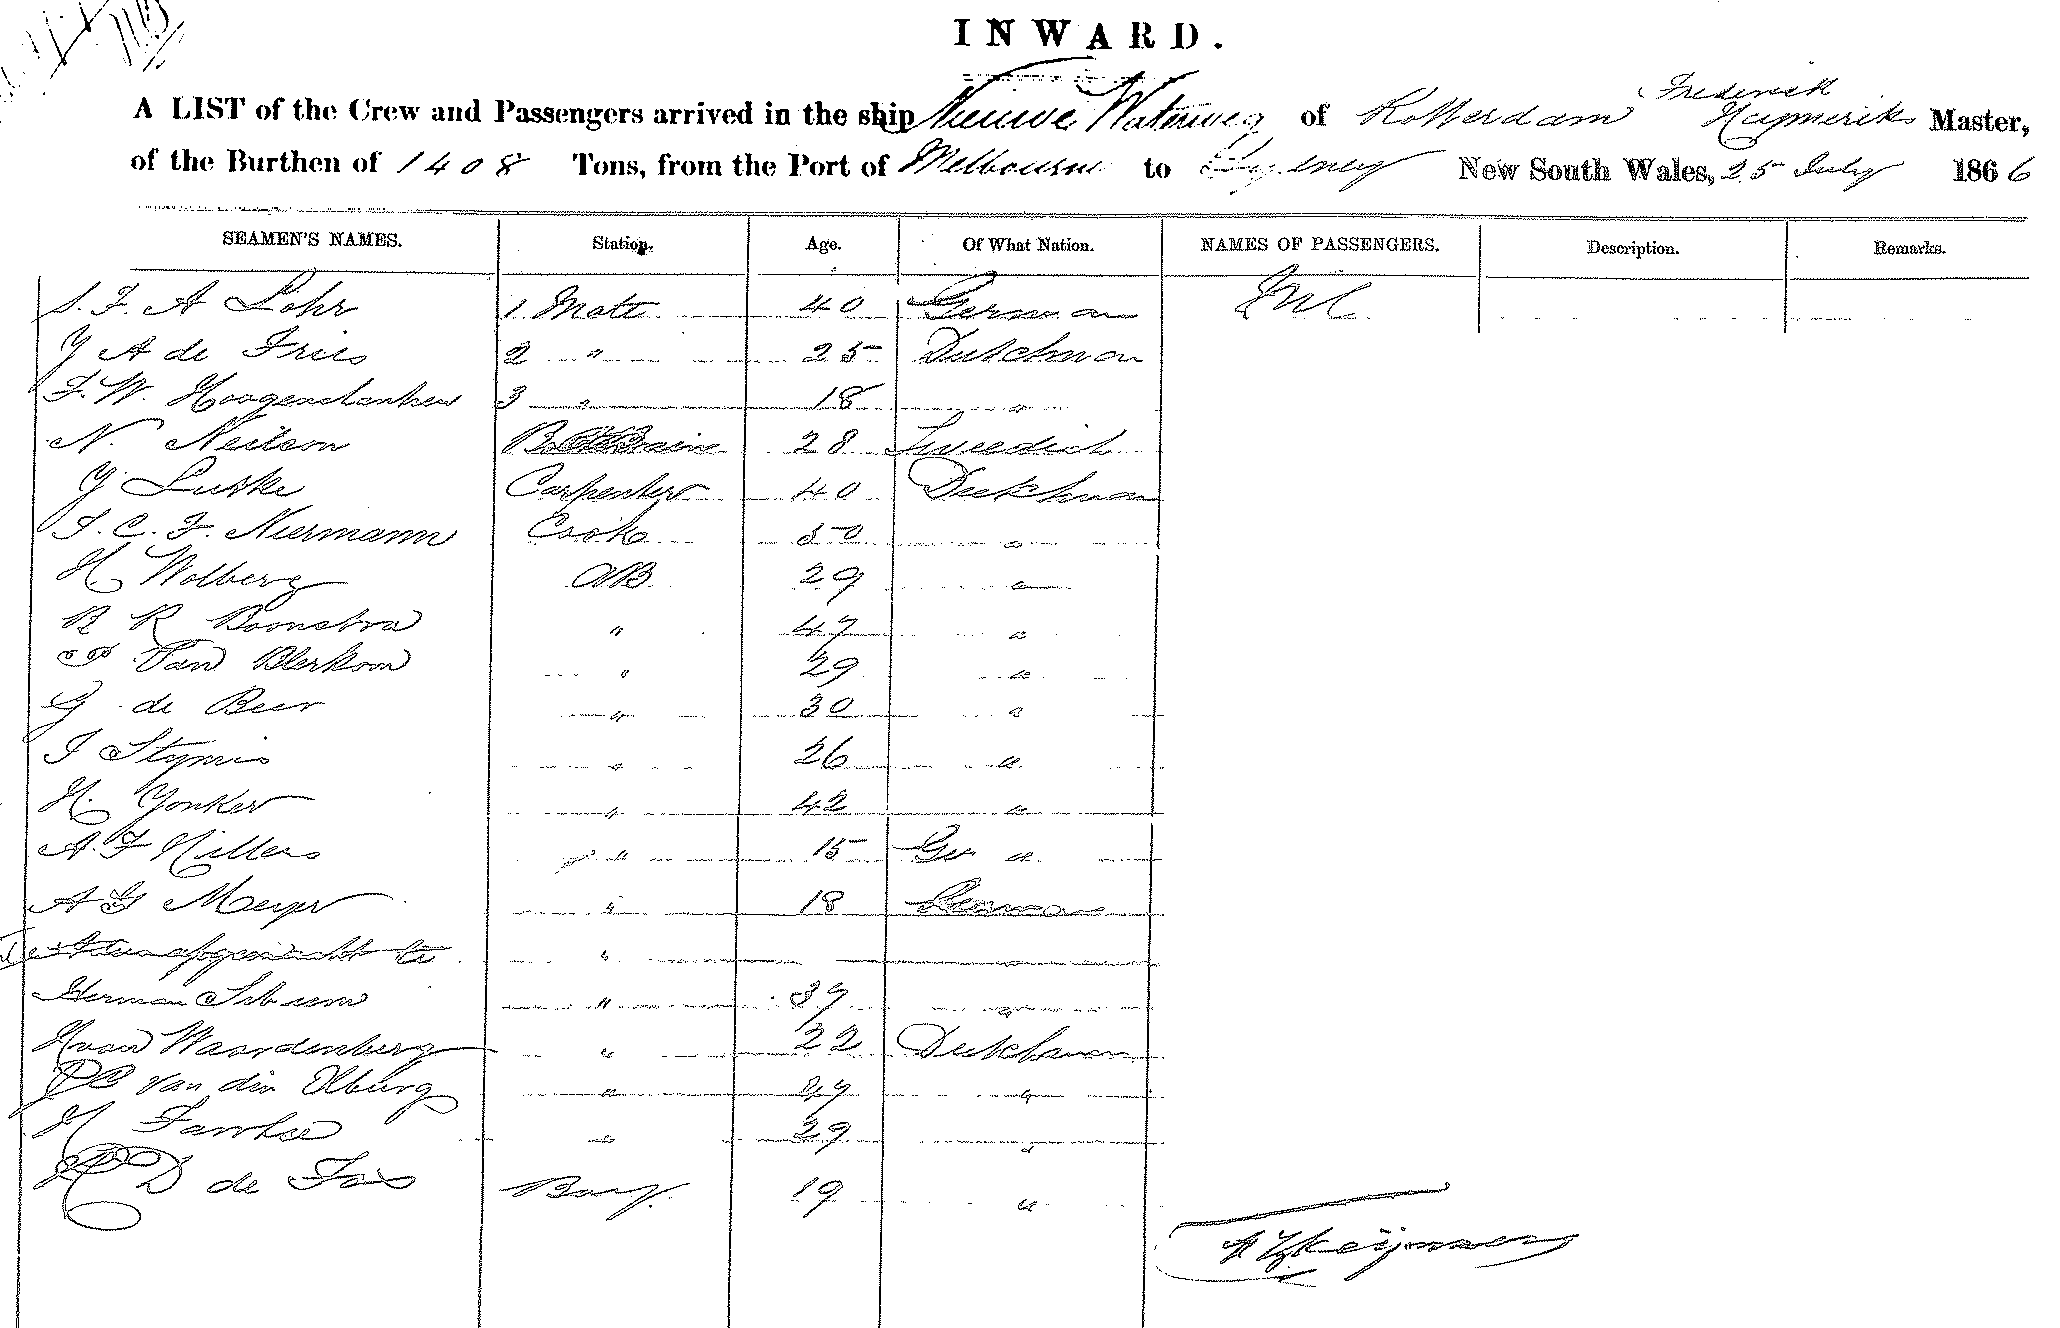 INWARD.
A LIST of the Crew and Passengers arrived in the ship Nieuwe Waterweg of Rotterdam Frederick Heymeriks Master,
of the Burthen of 1408 Tons, from the Port of Melbourne to Sydney New South Wales, 25 July 1866
SEAMEN'S NAMES. Station. Age. Of What Nation. NAMES OF PASSENGERS. Description. Remarks.
S. F. A Lohr 1 Mate 40 German Nil
J A de Fries 2 " 25 Dutchman
F. W. Hoogenstanken 3 " 18 "
N. Neilson 28 Swedish
J Luske Carpenter 40 Dutchman
S. C. F. Niermann Cook 50 "
H Wolberg AB 29 "
R R Boonstra " 47 "
P Van Blerkom " 29 "
G de Beer " 30 "
J Stymis " 26 "
H. Yonker " 42 "
A. F Hillers " 15 Ger "
A G Meyer " 18 German
" "
Herman Sibum " 37 "
H van Waardenberg " 22 Dutchman
van den " 47 "
H " 29 "
D de Fos Boy. 19 "